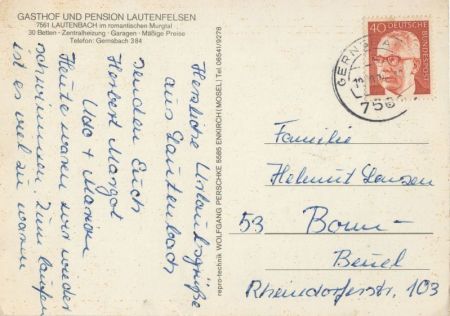 GASTHOF UND PENSION LAUTENFELSEN
7561 LAUTENBACH im romantischen Murgtal
30 Betten · Zentralheizung · Garagen · Mäßige Preise
Telefon: Gernsbach 384
Herzliche Urlaubsgrüße
aus Lautenbach
senden Euch
Herbert Margot
Udo + Marion
Heute waren wir wieder
schwimmen. Zum laufen
ist es viel zu warm
repro-technik WOLFGANG PERSCHKE 5585 ENKIRCH (MOSEL) Tel. 06541/9278
40 DEUTSCHE BUNDESPOST
GERNS
756
Familie
Helmut Jansen
53 Bonn-
Beuel
Rheindorferstr. 103